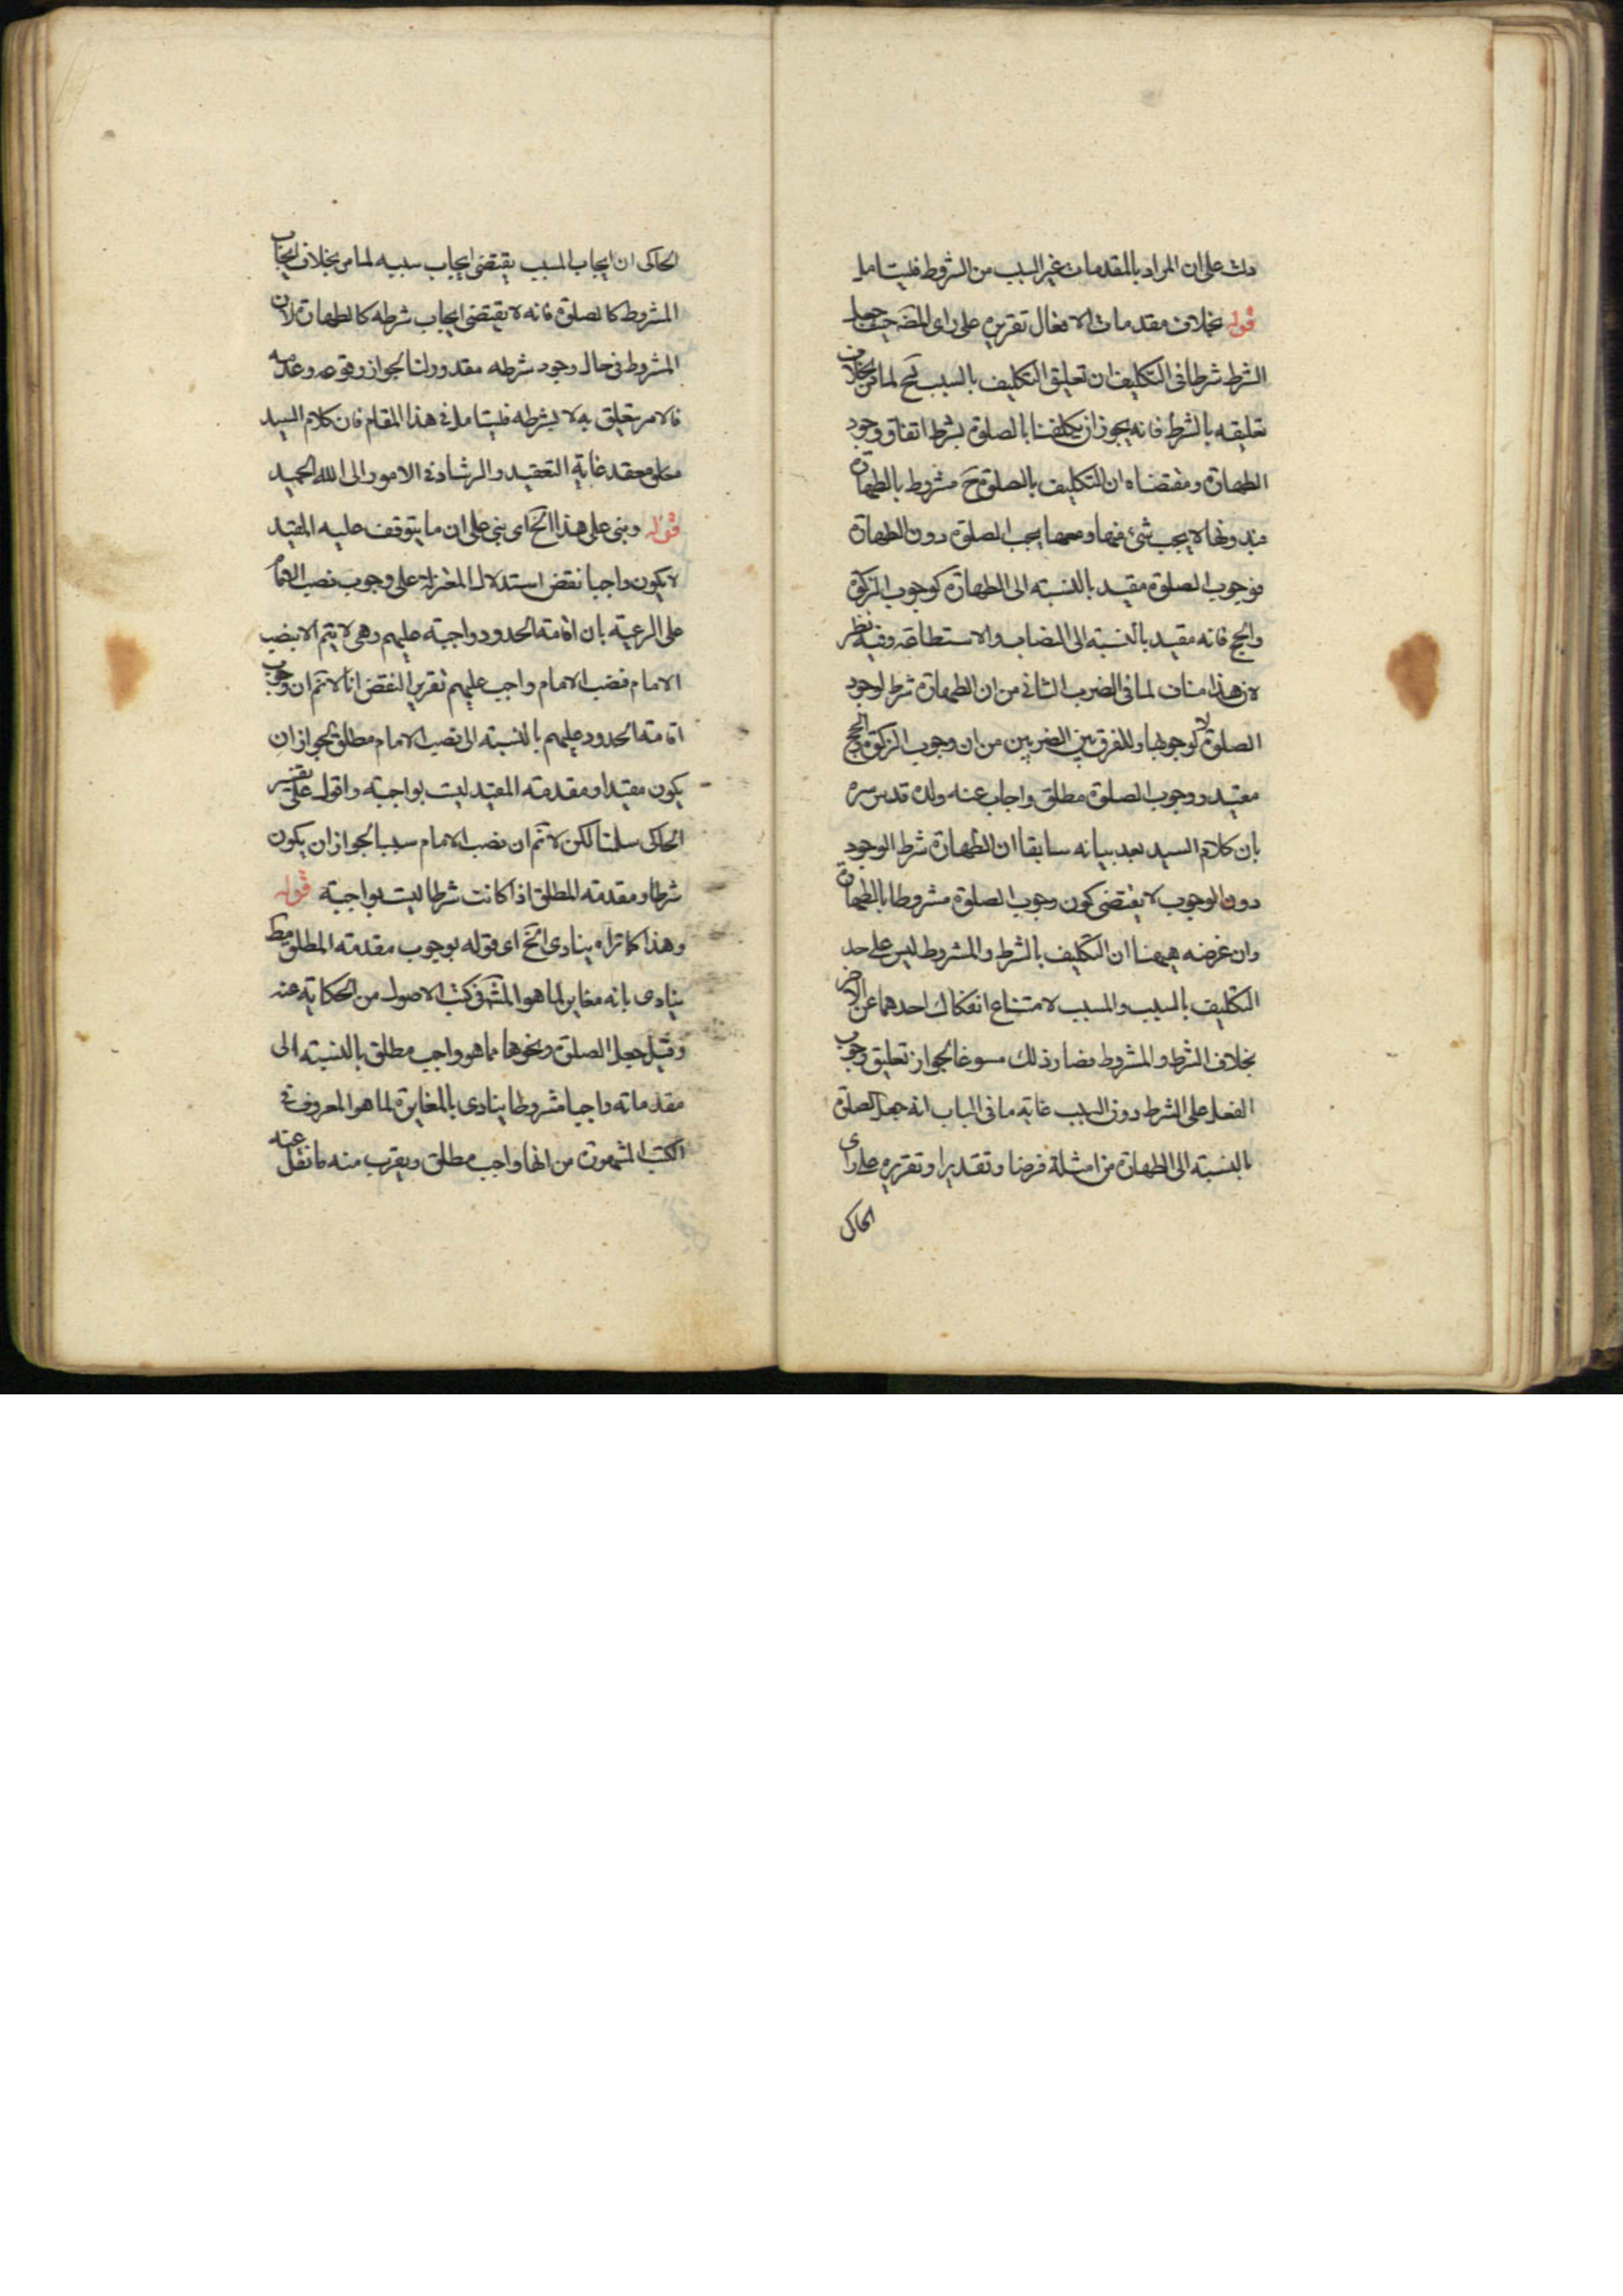 دلت على ان المراد بالمقدمات غير السبب من الشروط فليتامل
قوله بخلاف مقدمات الافعال تقريره على راى المص حيث جعل
الشرط شرطا فى التكليف ان تعليق التكليف بالسبب قبح لما مر بخلاف
تعليقه بالشرط فانه يجوز ان يكلفنا بالصلوة بشرط اتفاق وجود
الطهارة ومقتضاه ان التكليف بالصلوة ح مشروط بالطهارة
فبدونها لا يجب شئ منهما ومعها يجب الصلوة دون الطهارة
فوجوب الصلوة مقيد بالنسبة الى الطهارة كوجوب الزكوة
والحج فانه مقيد بالنسبة الى النصاب والاستطاعة وفيه نظر
لان هذا مناف لما فى الضرب الثانى من ان الطهارة شرط لوجود
الصلوة لا لوجوبها وللفرق بين الضربين من ان وجوب الزكوة والحج
مقيد ووجوب الصلوة مطلق واجاب عنه ولده قدس سره
بان كلام السيد بعد بيانه سابقا ان الطهارة شرط الوجود
دون الوجوب لا يقتضى كون وجوب الصلوة مشروطا بالطهارة
وان غرضه هيهنا ان التكليف بالشرط والمشروط ليس على حد
التكليف بالسبب والمسبب لامتناع انفكاك احدهما عن الاخر
بخلاف الشرط والمشروط فصار ذلك مسوغا لجواز تعليق وجوب
الفعل على الشرط دون السبب غاية ما فى الباب انه جعل الصلوة
بالنسبة الى الطهارة من امثلة فرضا وتقديرا وتقريره على راى
الحاكى
الحاكى ان ايجاب المسبب يقتضى ايجاب سببه لما مر بخلاف ايجاب
المشروط كالصلوة فانه لا يقتضى ايجاب شرطه كالطهارة لان
المشروط فى حال وجود شرطه مقدور لنا لجواز وقوعه وعدمه
فالامر يتعلق به لا بشرطه فليتامل فى هذا المقام فان كلام السيد
مغلق معقد غاية التعقيد والرشاد فى الامور الى الله الحميد
قوله وبنى على هذا الخ اى بنى على ان ما يتوقف عليه المقيد
لا يكون واجبا نقض استدلال المعتزلة على وجوب نصب الامام
على الرعية بان اقامة الحدود واجبة عليهم وهى لا يتم الا بنصب
الامام فنصب الامام واجب عليهم تقرير النقض انا لا نثم ان وجوب
اقامة الحدود عليهم بالنسبة الى نصب الامام مطلق لجواز ان
يكون مقيدا ومقدمة المقيد ليست بواجبة واقول على تفسير
الحاكى سلمنا لكن لا نثم ان نصب الامام سبب لجواز ان يكون
شرطا ومقدمة المطلق اذا كانت شرطا ليست بواجبة قوله
وهذا كما تراه ينادى الخ اى قوله بوجوب مقدمة المطلق مط
ينادى بانه مغاير لما هو المشهور فى كتب الاصول من الحكاية عنه
وقيل جعل الصلوة ونحوها مما هو واجب مطلق بالنسبة الى
مقدماته واجبا مشروطا ينادى بالمغايرة لما هو المعروف فى
الكتب المشهورة من انها واجب مطلق ويقرب منه ما نقل عنه